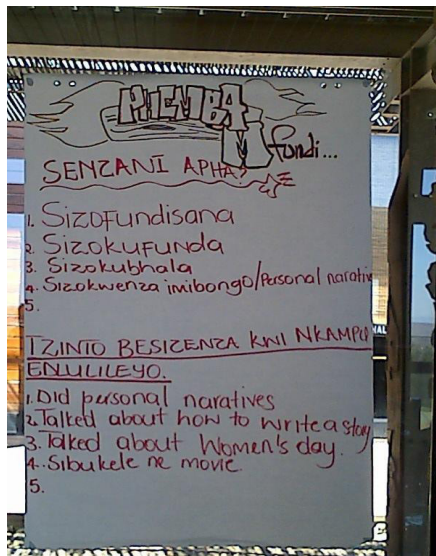 PHEMBA
Mfundi...
SENZANI APHA?
1. Sizofundisana
2. Sizokufunda
3. Sizokubhala
4. Sizokwenza imibongo/Personal narativ
5.
IZINTO BESIZENZA KWI NKAMPU
ENLULILEYO.
1. Did personal naratives
2. Talked about how to write a story
3. Talked about Women's day.
4. Sibukele ne movie.
5.